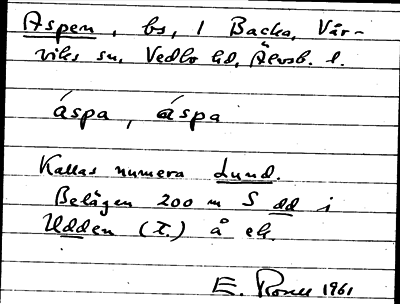 Aspen, bs, 1 Backa, Vår-
viks sn, Vedbo hd, Älvsb. l.
áspa, áspa
Kallas numera Lund.
Belägen 200 m S dd i
Udden (T.) å ek.
E. Rosell 1961